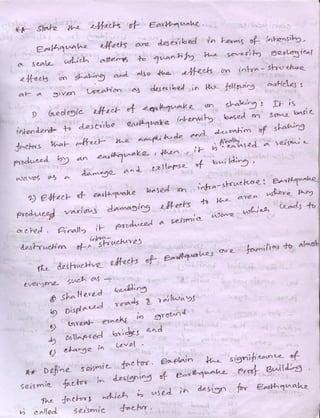 ** State the effects of Earthquake.
Earthquake effects are described in terms of intensity,
a scale which attemps to quantify the severity geological
effects on shaking and also the effects on intra-structure
at a given location as described in the following articles :
1) Geologic effect of earthquake on shaking : It is
intended to describe earthquake intensity based on some basic
factors that affect the amplitude and duration of shaking
produced by an earthquake, then, it finally caused a seismic
waves as a damage and collapse of building.
2) Effect of earthquake based on infra-structure : Earthquake
produced various damaging effects to the area where they
acted. Finally it produced a seismic wave which, leads to
destruction of intra-structures
The destructive effects of Earthquakes are familiar to almost
everyone such as —
a) Shattered building
b) Displaced roads & railways
c) Great cracks in ground
d) Collapsed bridges and
e) change in Level.
** Define seismic factor. Explain the significance of
seismic factor in designing of Earthquake Proof Building.
The factors which is used in design for Earthquake
is called seismic factor.